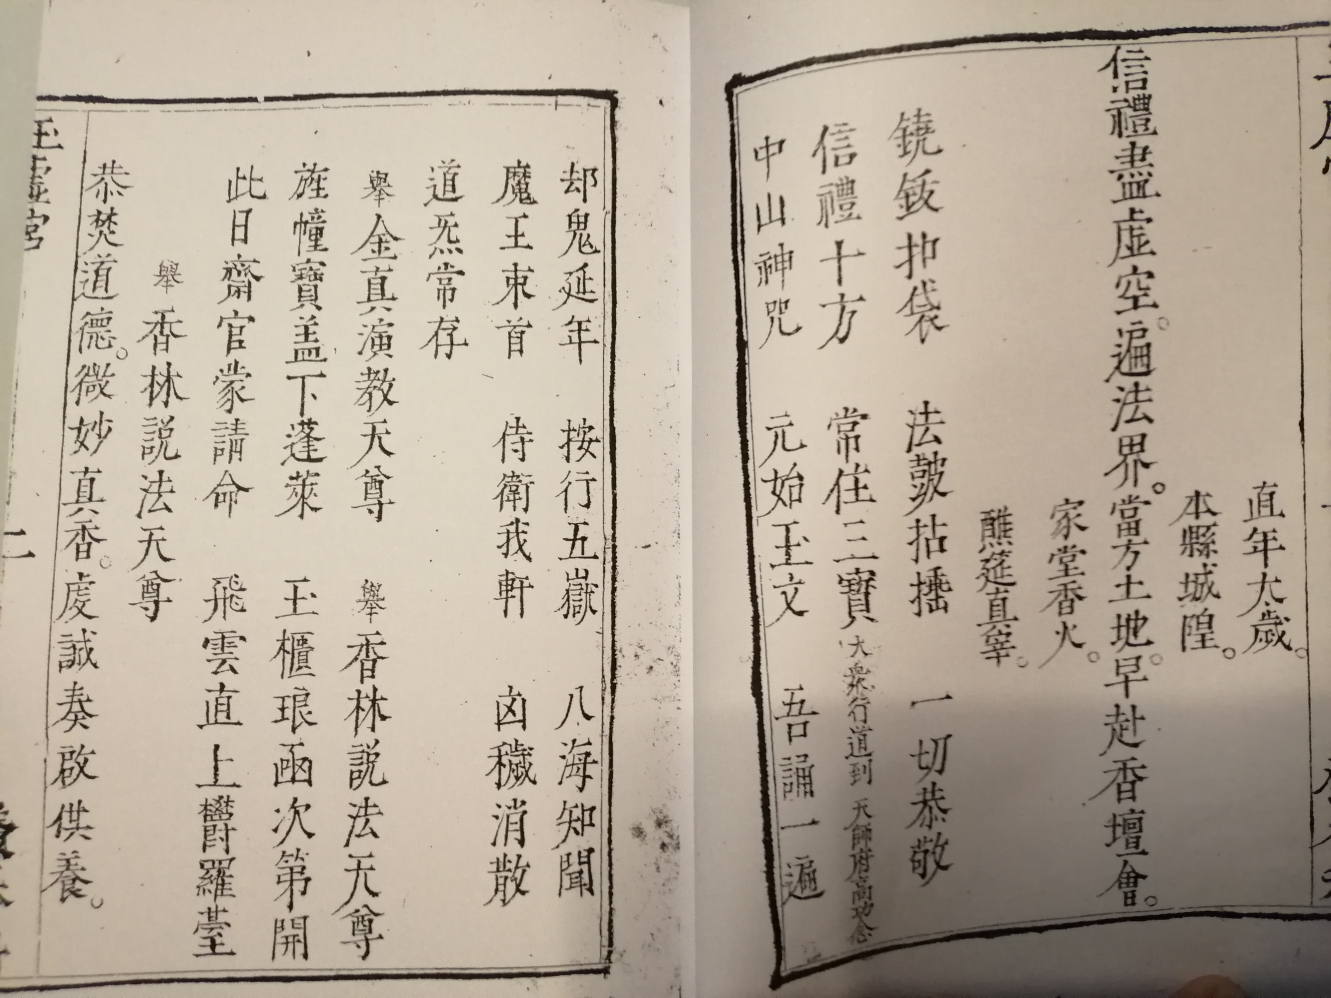 直年太歲。
本縣城隍。
信禮盡虛空。遍法界。當方土地。早赴香壇會。
家堂香火。
醮筵真宰。
鐃鈸抑袋 法皷拈播 一切恭敬
信禮十方 常住三寶 大衆行道到 天師府高功念
中山神咒 元始玉文 吾誦一遍
却鬼延年 按行五嶽 八海知聞
魔王束首 侍衛我軒 凶穢消散
道炁常存
舉金真演教天尊 舉香林説法天尊
旌幢寶盖下蓬萊 玉櫃琅函次第開
此日齋官蒙請命 飛雲直上欝羅臺
舉香林説法天尊
恭焚道德。微妙真香。虔誠奏啟供養。
玉虛宮 二